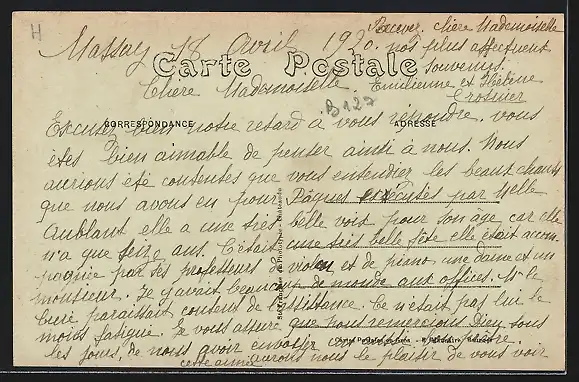 H
Massay 18 Avril 1920.
Recevez, chère Mademoiselle
nos plus affectueux
souvenirs.
Emilienne et Hélène
Crosnier
Carte Postale
Chère Mademoiselle
B127
CORRESPONDANCE
ADRESSE
Excusez bien notre retard à vous répondre. vous
êtes bien aimable de penser ainsi à nous. Nous
aurions été contentes que vous entendiez les beaux chants
que nous avons eu pour Pâques exécutés par Melle
Aublant elle a une très belle voix pour son âge car elle
n'a que seize ans. C'était une très belle fête elle était accom
pagnée par ses professeurs de violon et de piano une dame et un
monsieur. Il y avait beaucoup de monde aux offices. Mr le
curé paraissait content de l'assistance. Ce n'était pas lui le
moins fatigué. Je vous assure que nous remercions Dieu tous
les jours, de nous avoir envoyé un si bon prêtre.
cette année aurons nous le plaisir de vous voir